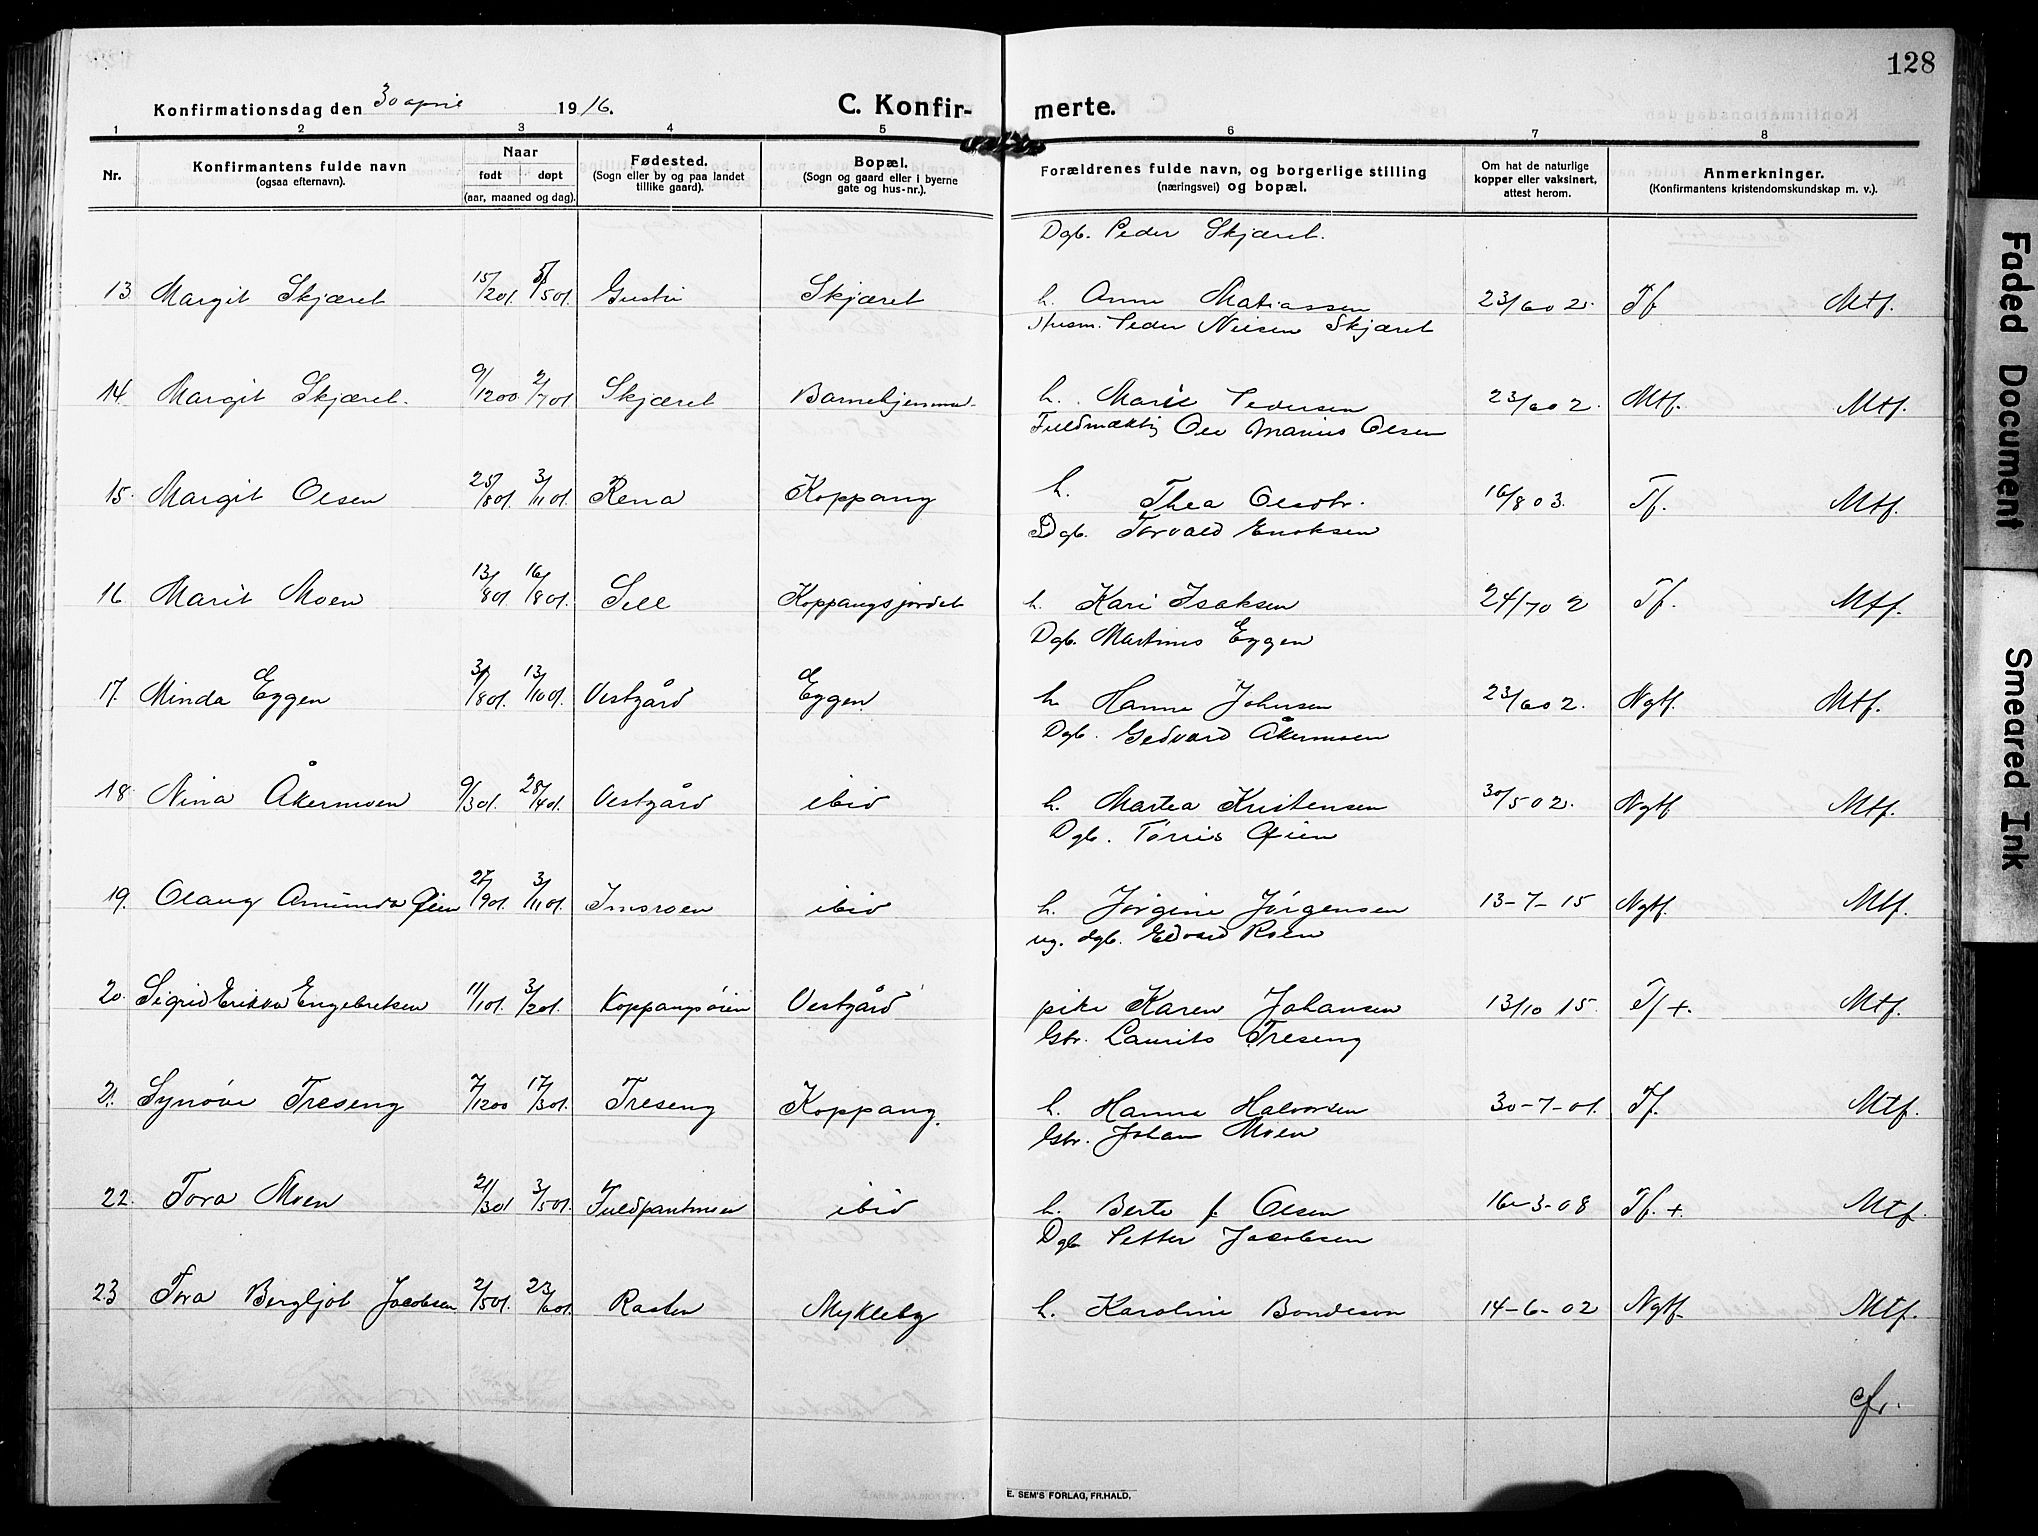 128
Konfirmationsdag den 30 april 1916.
C. Konfirmerte.
1 2 3 4 5 6 7 8
Nr.
Konfirmantens fulde navn
(ogsaa efternavn).
Naar
født døpt
(aar, maaned og dag).
Fødested.
(Sogn eller by og paa landet
tillike gaard).
Bopæl.
(Sogn og gaard eller i byerne
gate og hus-nr.).
Forældrenes fulde navn, og borgerlige stilling
(næringsvei) og bopæl.
Om hat de naturlige
kopper eller vaksinert,
attest herom.
Anmerkninger.
(Konfirmantens kristendomskundskap m. v.).
Dgb. Peder Skjæret.
13 Margit Skjæret 15/2 01. 5/5 01. Skjæret h. Anne Matiassen 23/6 02. Tf. Mtf.
Peder Nilsen Skjæret
14. Margit Skjæret. 9/12 00. 2/7 01 Skjæret Barnehjemme. h. Marie Pedersen 23/6 02. Mtf. Mtf.
Fuldmæktig Ole Marius Olsen
15. Margit Olsen 25/8 01. 3/11 01. Rena Koppang h. Thea Olsdtr. 16/8 03. Tf. Mtf.
Dgb. Torvald Enoksen
16 Marit Moen 13/8 01. 16/8 01. Sell Koppangsjordet h. Kari Isaksen 24/7 02 Tf. Mtf.
Dgb. Martinus Eggen
17. Minda Eggen 31/8 01. 13/10 01. Vestgård Eggen h. Hanne Johnsen 23/6 02. Ngtf. Mtf.
Dgb. Gedvard Åkermoen
18. Nina Åkermoen 9/3 01. 28/4 01. Vestgård ibid h. Martea Kristensen 30/5 02. Ngtf Mtf.
Dgb. Tørris Øien
19. Olaug Amunda Øien 27/9 01. 3/11 01. Imsroen ibid h. Jørgine Jørgensen 13-7-15 Ngtf. Mtf.
ug. dgb. Edvard Roen
20. Sigrid Erikka Engebretsen 11/1 01. 3/2 01. Koppangsøien Vestgård pike Karen Johansen 13/10 15. Tf +. Mtf.
Gbr. Laurits Treseng
21. Synøve Treseng 7/12 00 17/3 01. Treseng Koppang. h. Hanna Halvorsen 30-7-01. Tf. Mtf.
Gbr. Johan Moen
22. Tora Moen 21/3 01 3/5 01. ibid h. Berte f. Olsen 16-3-08 Tf. +. Mtf.
Dgb Petter Jacobsen
23 Tora Bergljot Jacobsen 2/5 01. 23/6 01. Rasten Mykleby h. Karoline Bondeson 14-6-02 Ngtf. Mtf.
cfr.
E. SEM'S FORLAG, FR.HALD.
Faded Document
Smeared Ink